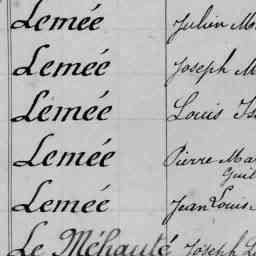 Lemée Julien
Lemée Joseph
Lemée Louis
Lemée Pierre
Lemée Jean Louis
Le Méhauté Joseph